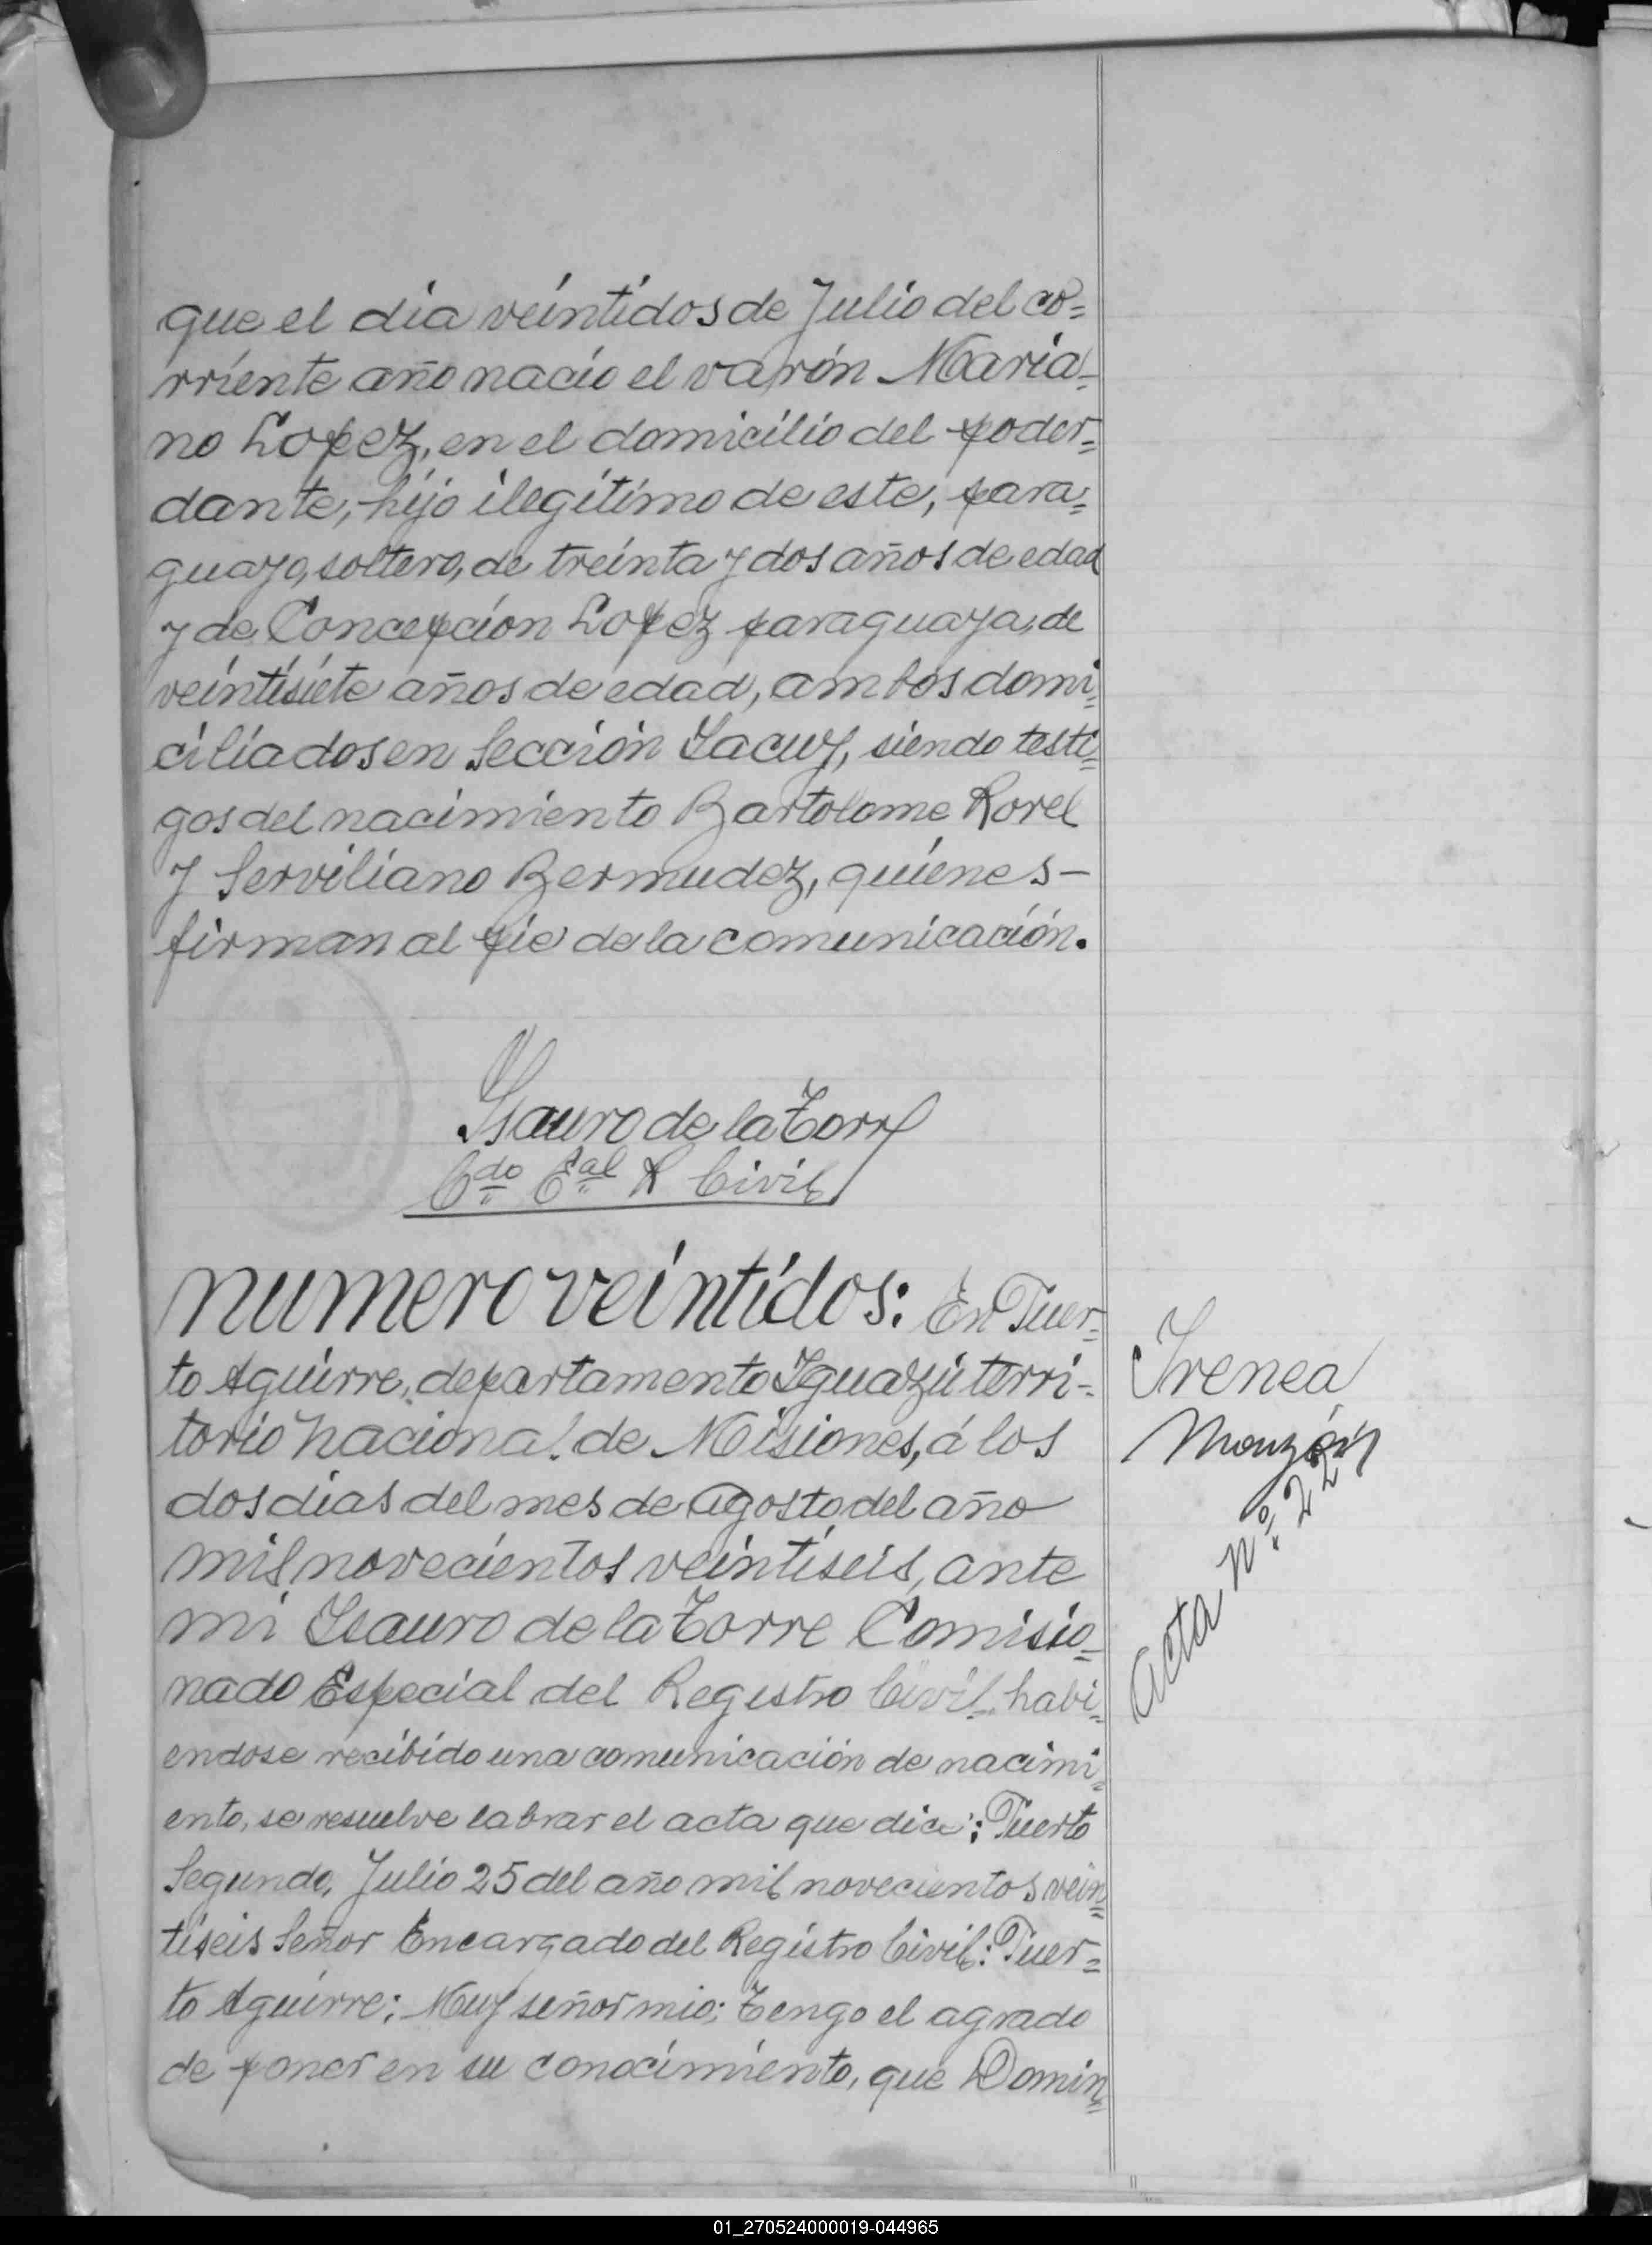 que el dia veintidos de Julio del co=
rriente año nacio el varón Maria=
no Lopez, en el domicilio del poder=
dante, hijo ilegítimo de este, para=
guayo, soltero, de treinta y dos años de edad
y de Concepción Lopez paraguaya, de
veintisiete años de edad, ambos domi=
ciliados en Sección Yacuy, siendo testi=
gos del nacimiento Bartolome Rorel
y Serviliano Bermudez, quienes-
firman al pie de la comunicación.
Isauro de la Torre
Cdo Eal R Civil
numero veintidos: En Puer=
to Aguirre, departamento Iguazú terri-
torio nacional de Misiones, á los
dos dias del mes de Agosto del año
mil novecientos veintiseis, ante
mi Isauro de la Torre Comisio=
nado Especial del Registro Civil, habi=
endose recibido una comunicación de nacimi=
ento, se resuelve labrar el acta que dice: Puerto
Segundo, Julio 25 del año mil novecientos vein=
tiseis Señor Encargado del Registro Civil: Puer=
to Aguirre; Muy señor mio; Tengo el agrado
de poner en su conocimiento, que Domin=
Irenea
Monzón
Acta Nº 22
01_270524000019-044965